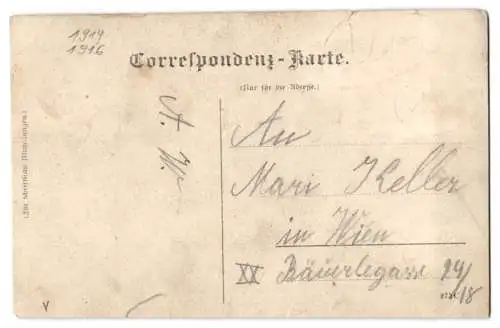 1914
1916
Correspondenz-Karte.
(Nur für die Adresse.)
A. W.
(Für schriftliche Mitteilungen.)
An
Mari Keller
in Wien
XX Bäuerlegasse 24/18
V